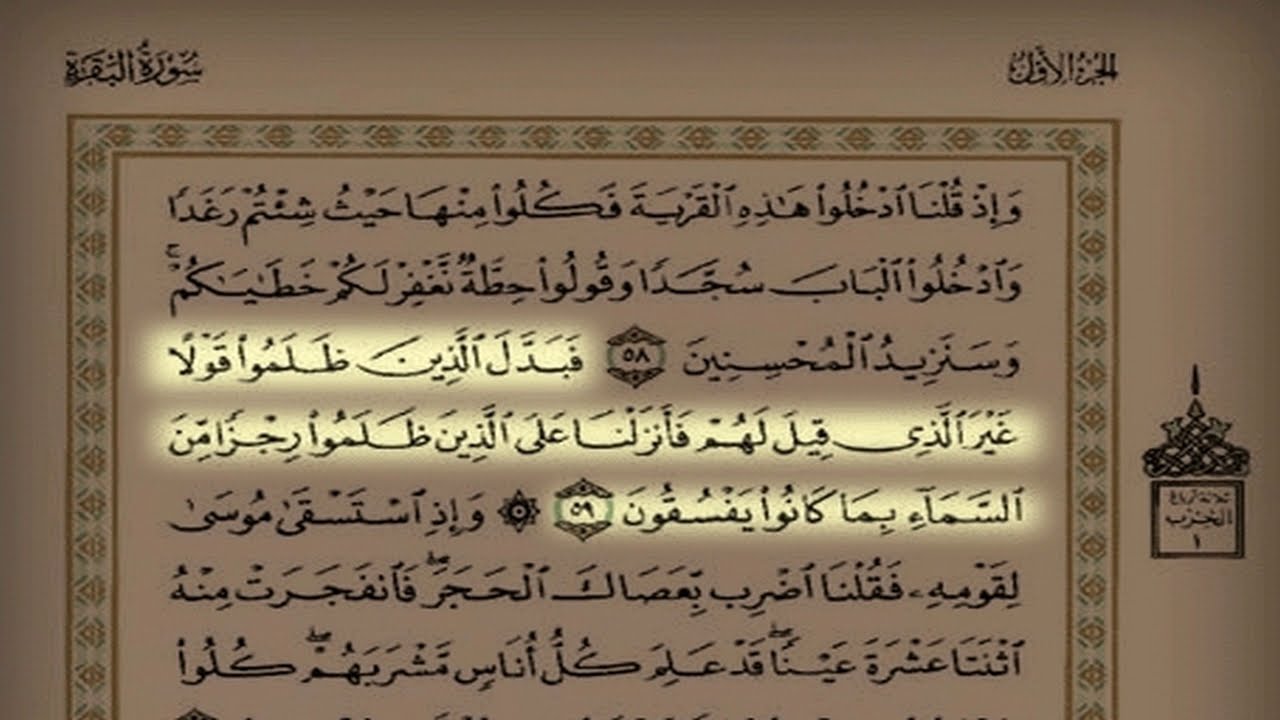 الجزء الأول
سورة البقرة
وَإِذْ قُلْنَا ٱدْخُلُوا۟ هَـٰذِهِ ٱلْقَرْيَةَ فَكُلُوا۟ مِنْهَا حَيْثُ شِئْتُمْ رَغَدًا
وَٱدْخُلُوا۟ ٱلْبَابَ سُجَّدًا وَقُولُوا۟ حِطَّةٌ نَّغْفِرْ لَكُمْ خَطَـٰيَـٰكُمْ ۚ
وَسَنَزِيدُ ٱلْمُحْسِنِينَ ٥٨ فَبَدَّلَ ٱلَّذِينَ ظَلَمُوا۟ قَوْلًا
غَيْرَ ٱلَّذِى قِيلَ لَهُمْ فَأَنزَلْنَا عَلَى ٱلَّذِينَ ظَلَمُوا۟ رِجْزًا مِّنَ
ٱلسَّمَآءِ بِمَا كَانُوا۟ يَفْسُقُونَ ٥٩ ۞ وَإِذِ ٱسْتَسْقَىٰ مُوسَىٰ
لِقَوْمِهِۦ فَقُلْنَا ٱضْرِب بِّعَصَاكَ ٱلْحَجَرَ ۖ فَٱنفَجَرَتْ مِنْهُ
ٱثْنَتَا عَشْرَةَ عَيْنًا ۖ قَدْ عَلِمَ كُلُّ أُنَاسٍ مَّشْرَبَهُمْ ۖ كُلُوا۟
ثلاثة أرباع
الحزب
١